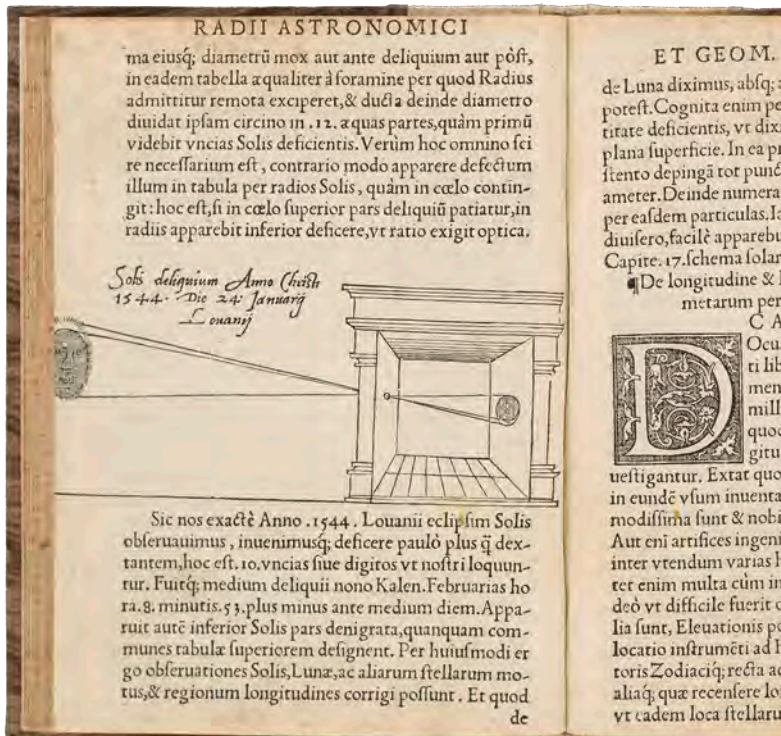 RADII ASTRONOMICI
ma eiusq́; diametrũ mox aut ante deliquium aut pòſt,
in eadem tabella æqualiter à foramine per quod Radius
admittitur remota exciperet, & ducta deinde diametro
diuidat ipſam circino in .12. æquas partes, quàm primũ
videbit vncias Solis deficientis. Verùm hoc omnino ſci
re neceſſarium eſt, contrario modo apparere defectum
illum in tabula per radios Solis, quàm in cœlo contin-
git: hoc eſt, ſi in cœlo ſuperior pars deliquiũ patiatur, in
radiis apparebit inferior deficere, vt ratio exigit optica.
Solis deliquium Anno Chriſti
1544. Die 24 Januarij
Louanij
Sic nos exactè Anno .1544. Louanii eclipſim Solis
obſeruauimus, inuenimusq́; deficere paulò plus q̃ dex-
tantem, hoc eſt. 10. vncias ſiue digitos vt noſtri loquun-
tur. Fuitq́; medium deliquii nono Kalen. Februarias ho
ra. 8. minutis. 53. plus minus ante medium diem. Appa-
ruit autẽ inferior Solis pars denigrata, quanquam com-
munes tabulæ ſuperiorem deſignent. Per huiuſmodi er
go obſeruationes Solis, Lunæ, ac aliarum ſtellarum mo-
tus, & regionum longitudines corrigi poſſunt. Et quod
de
ET GEOM.
de Luna diximus, abſq; a
poteſt. Cognita enim pe
titate deficientis, vt dixi
plana ſuperficie. In ea pr
ſtento depingã tot punc
ameter. Deinde numera
per eaſdem particulas. Ia
diuiſero, facilè apparebu
Capite. 17. ſchema ſolar
¶De longitudine & l
metarum per
C A
D Ocu
ti lib
men
mill
quod
gitu
ueſtigantur. Extat quo
in eundẽ vſum inuenta
modiſſima ſunt & nobi
Aut enĩ artifices ingeni
inter vtendum varias h
tet enim multa cùm in
deò vt difficile fuerit c
lia ſunt, Eleuationis po
locatio inſtrumẽti ad h
toris Zodiaciq́; recta ac
aliaq́; quæ recenſere lo
vt eadem loca ſtellaru